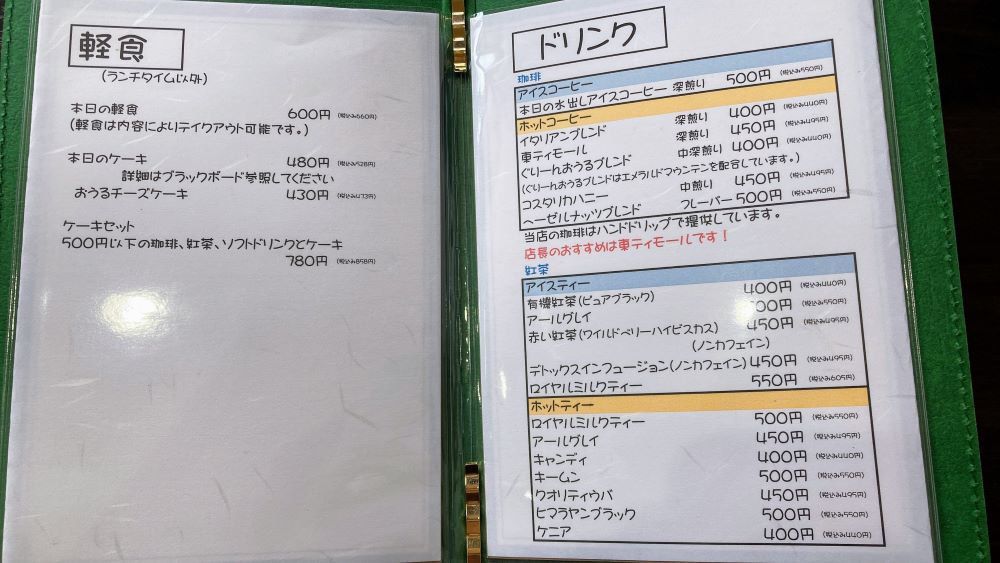 軽食
(ランチタイム以外)
本日の軽食 600円 (税込み660円)
(軽食は内容によりテイクアウト可能です。)
本日のケーキ 480円 (税込み528円)
詳細はブラックボード参照してください
おうるチーズケーキ 430円 (税込み473円)
ケーキセット
500円以下の珈琲、紅茶、ソフトドリンクとケーキ
780円 (税込み858円)
ドリンク
珈琲
アイスコーヒー
本日の水出しアイスコーヒー 深煎り 500円 (税込み550円)
ホットコーヒー
イタリアンブレンド 深煎り 400円 (税込み440円)
東ティモール 深煎り 450円 (税込み495円)
ぐりーんおうるブレンド 中深煎り 400円 (税込み440円)
(ぐりーんおうるブレンドはエメラルドマウンテンを配合しています。)
コスタリカハニー 中煎り 450円 (税込み495円)
ヘーゼルナッツブレンド フレーバー 500円 (税込み550円)
当店の珈琲はハンドドリップで提供しています。
店長のおすすめは東ティモールです！
紅茶
アイスティー
有機紅茶(ピュアブラック) 400円 (税込み440円)
アールグレイ 500円 (税込み550円)
赤い紅茶(ワイルドベリーハイビスカス) 450円 (税込み495円)
(ノンカフェイン)
デトックスインフュージョン(ノンカフェイン) 450円 (税込み495円)
ロイヤルミルクティー 550円 (税込み605円)
ホットティー
ロイヤルミルクティー 500円 (税込み550円)
アールグレイ 450円 (税込み495円)
キャンディ 400円 (税込み440円)
キームン 500円 (税込み550円)
クオリティウバ 450円 (税込み495円)
ヒマラヤンブラック 500円 (税込み550円)
ケニア 400円 (税込み440円)